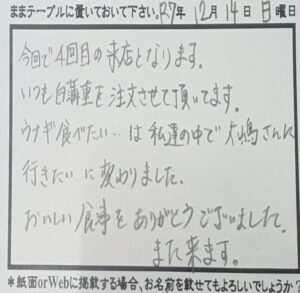 ままテーブルに置いておいて下さい。R7年12月14日日曜日
今回で4回目の来店となります。
いつも白蒲重を注文させて頂いてます。
ウナギ食べたい…は私達の中で大嶋さんに
行きたい…に変わりました。
おいしい食事をありがとうございました。
また来ます。
＊紙面orWebに掲載する場合、お名前を載せてもよろしいでしょうか？